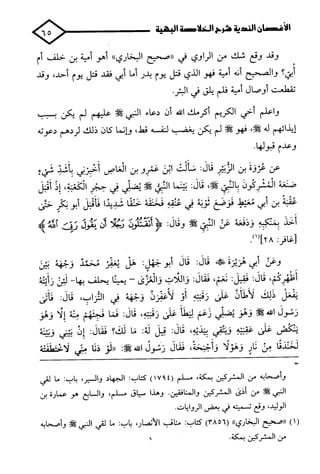 الأغصان الندية شرح الخلاصة البهية
٦٥
وقد وقع شك من الراوي في «صحيح البخاري» أهو أمية بن خلف أم
أبي؟ والصحيح أنه أمية فهو الذي قتل يوم بدر أما أبي فقد قتل يوم أحد، وقد
تقطعت أوصال أمية فلم يلق في البئر.
واعلم أخي الكريم أكرمك الله أن دعاء النبي ﷺ عليهم لم يكن بسبب
إيذائهم له ﷺ، فهو ﷺ لم يكن يغضب لنفسه قط، وإنما كان ذلك لردهم دعوته
وعدم قبولها.
عن عُرْوَةَ بن الزُّبَيْرِ قَالَ: سَأَلْتُ ابْنَ عَمْرِو بن الْعَاصِ أَخْبِرْنِي بِأَشَدِّ شَيْءٍ
صَنَعَهُ الْمُشْرِكُونَ بِالنَّبِيِّ ﷺ، قَالَ: بَيْنَما النَّبِيُّ ﷺ يُصَلِّي فِي حِجْرِ الْكَعْبَةِ، إِذْ أَقْبَلَ
عُقْبَةُ بن أَبِي مُعَيْطٍ فَوَضَعَ ثَوْبَهُ فِي عُنُقِهِ فَخَنَقَهُ خَنْقًا شَدِيدًا فَأَقْبَلَ أَبو بَكْرٍ حَتَّى
أَخَذَ بِمَنْكِبِهِ وَدَفَعَهُ عَنْ النَّبِيِّ ﷺ وقَالَ: ﴿أَتَقْتُلُونَ رَجُلًا أَن يَقُولَ رَبِّيَ اللَّهُ﴾
[غافر: ٢٨](١).
وعَنْ أَبِي هُرَيْرَةَ ﷺ قَالَ: قَالَ أَبو جَهْلٍ: هَلْ يُعَفِّرُ مُحَمَّدٌ وَجْهَهُ بَيْنَ
أَظْهُرِكُمْ، قَالَ: فَقِيلَ: نَعَمْ، فَقَالَ: وَاللَّاتِ وَالْعُزَّى – يمينًا يحلف بها- لَئِنْ رَأَيْتُهُ
يَفْعَلُ ذَلِكَ لَأَطَأَنَّ عَلَى رَقَبَتِهِ أَوْ لَأُعَفِّرَنَّ وَجْهَهُ فِي التُّرَابِ، قَالَ: فَأَتَى
رَسُولَ اللهِ ﷺ وَهُوَ يُصَلِّي زَعَمَ لِيَطَأَ عَلَى رَقَبَتِهِ، قَالَ: فَمَا فَجِئَهُمْ مِنْهُ إِلَّا وَهُوَ
يَنْكُصُ عَلَى عَقِبَيْهِ وَيَتَّقِي بِيَدَيْهِ، قَالَ: فَقِيلَ لَهُ: مَا لَكَ؟ فَقَالَ: إِنَّ بَيْنِي وَبَيْنَهُ
لَخَنْدَقًا مِنْ نَارٍ وَهَوْلًا وَأَجْنِحَةً، فَقَالَ رَسُولُ اللهِ ﷺ: «لَوْ دَنَا مِنِّي لَاخْتَطَفَتْهُ
وأصحابه من المشركين بمكة، مسلم (١٧٩٤) كتاب: الجهاد والسير، باب: ما لقي
النبي ﷺ من أذى المشركين والمنافقين. وهذا سياق مسلم، والسابع هو عمارة بن
الوليد، وقع تسميته في بعض الروايات.
(١) «صحيح البخاري» (٣٨٥٦) كتاب: مناقب الأنصار، باب: ما لقي النبي ﷺ وأصحابه
من المشركين بمكة.